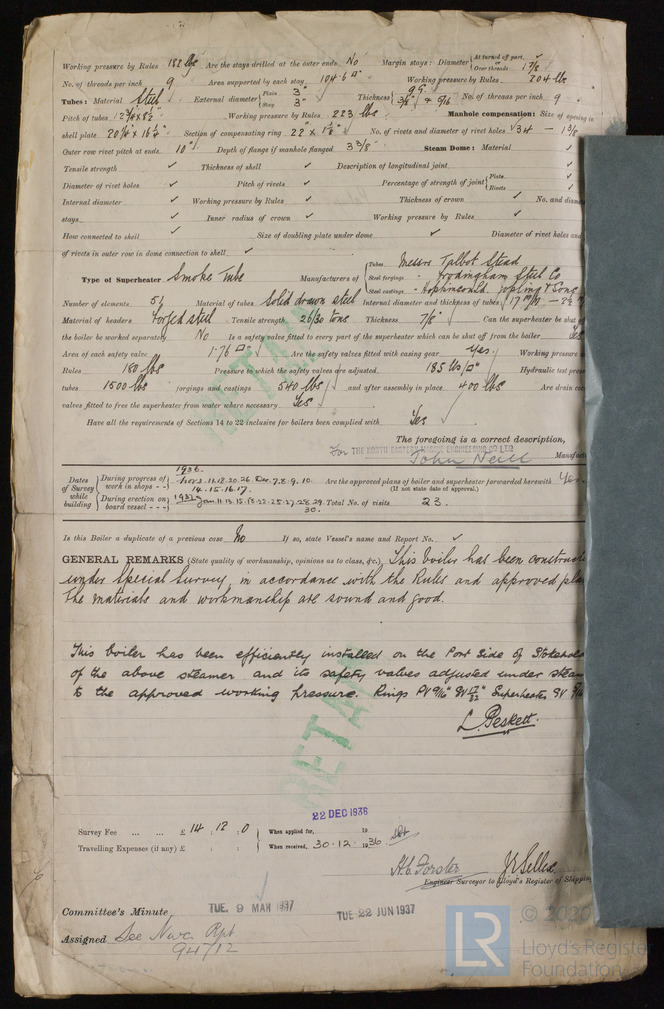 Working pressure by Rules 182 lbs Are the stays drilled at the outer ends No Margin stays: Diameter { At turned off part, or Over threads 1 7/8"
No. of threads per inch 9 Area supported by each stay 104.6 □" Working pressure by Rules 204 lbs
Tubes: Material Steel External diameter { Plain 3" Stay 3" Thickness { 9G 3/8" & 9/16 No. of threads per inch 9
Pitch of tubes Working pressure by Rules 223 lbs Manhole compensation: Size of opening in
shell plate 20 1/4" x 16 1/4" Section of compensating ring No. of rivets and diameter of rivet holes 34 — 1 3/8
Outer row rivet pitch at ends 10" Depth of flange if manhole flanged 3 3/8" Steam Dome: Material ✓
Tensile strength ✓ Thickness of shell ✓ Description of longitudinal joint ✓
Diameter of rivet holes ✓ Pitch of rivets ✓ Percentage of strength of joint { Plate ✓ Rivets ✓
Internal diameter ✓ Working pressure by Rules ✓ Thickness of crown ✓ No. and diam
stays ✓ Inner radius of crown ✓ Working pressure by Rules ✓
How connected to shell ✓ Size of doubling plate under dome ✓ Diameter of rivet holes and
of rivets in outer row in dome connection to shell ✓
Type of Superheater Smoke Tube Manufacturers of { Tubes Messrs Talbot Stead
Steel forgings " Frodingham Steel Co
Steel castings " Jopling & Sons
Number of elements 51 Material of tubes Solid drawn steel Internal diameter and thickness of tubes 17 m/m
Material of headers Forged steel Tensile strength 26/30 tons Thickness 7/8" Can the superheater be shut of
the boiler be worked separately No Is a safety valve fitted to every part of the superheater which can be shut off from the boiler Yes
Area of each safety valve 1.76 □" Are the safety valves fitted with easing gear Yes Working pressure
Rules 180 lbs Pressure to which the safety valves are adjusted 185 lbs/□" Hydraulic test press
tubes 1500 lbs forgings and castings 540 lbs and after assembly in place 400 lbs Are drain co
valves fitted to free the superheater from water where necessary Yes
Have all the requirements of Sections 14 to 22 inclusive for boilers been complied with Yes
RETAIN
The foregoing is a correct description,
For THE NORTH EASTERN MARINE ENGINEERING CO LTD
John Neill Manufact
Dates of Survey while building { During progress of work in shops - - 1936. Nov. 11.18.20.26. Dec. 7.8.9.10. 14.15.16.17. Are the approved plans of boiler and superheater forwarded herewith Yes
(If not state date of approval.)
During erection on board vessel - - - 1937 Jan. 11.13.15.18.22.25.27.28.29. 30. Total No. of visits 23.
Is this Boiler a duplicate of a previous case No If so, state Vessel's name and Report No. ✓
GENERAL REMARKS (State quality of workmanship, opinions as to class, &c.) This boiler has been constructe
under Special Survey, in accordance with the Rules and approved plan
The materials and workmanship are sound and good.
This boiler has been efficiently installed on the Port Side of Stokehold
of the above steamer and its safety valves adjusted under steam
to the approved working pressure. Rings PV 9/16" SV 17/32" Superheater SV
L. Peskett.
RETAIN
22 DEC 1936
Survey Fee ... ... £ 14 : 12 : 0 When applied for, 19
Travelling Expenses (if any) £ : : When received, 30.12.1936
H.C. Forster J.R. Sellex
Engineer Surveyor to Lloyd's Register of Shipping
Committee's Minute TUE. 9 MAR 1937 TUE 22 JUN 1937
Assigned See Nwc. Rpt
94712
LR © 2020
Lloyd's Register
Foundation